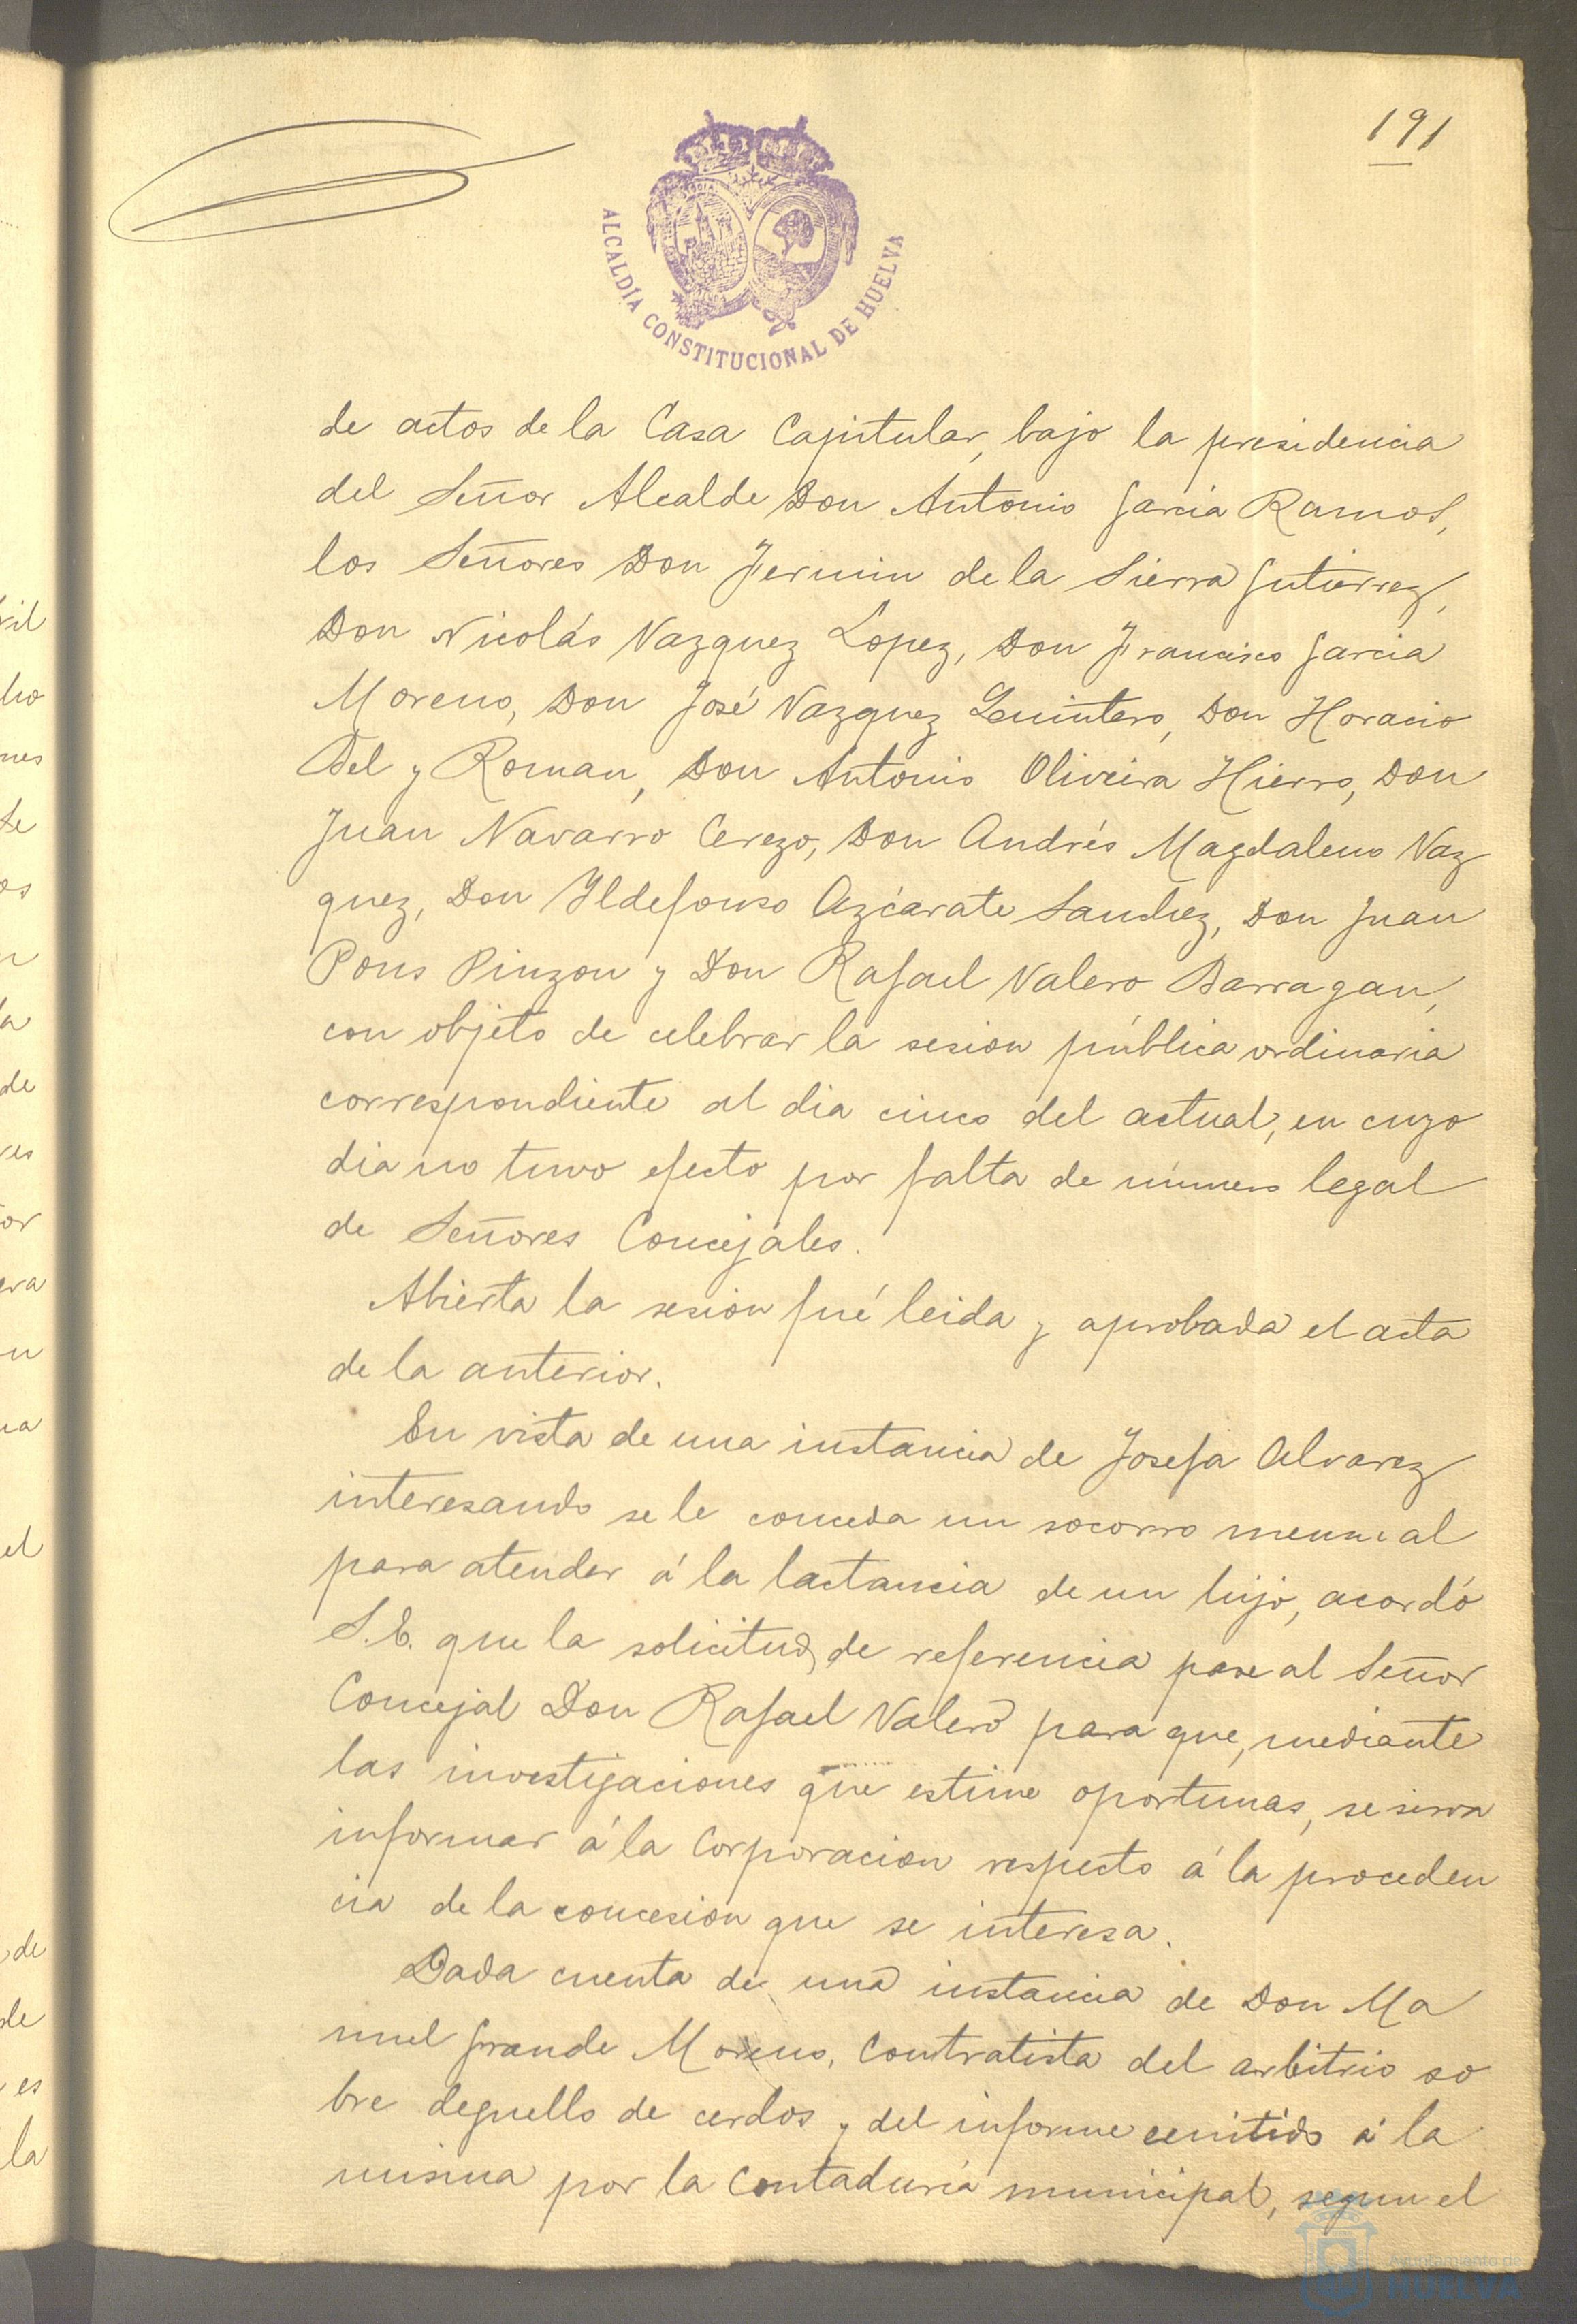 191
ALCALDÍA CONSTITUCIONAL DE HUELVA
de actos de la Casa Capitular, bajo la presidencia
del Señor Alcalde Don Antonio Garcia Ramos,
los Señores Don Fermin de la Sierra Gutierrez,
Don Nicolás Vazquez Lopez, Don Francisco Garcia
Moreno, Don José Vazquez Quintero, Don Horacio
Bel y Roman, Don Antonio Oliveira Hierro, Don
Juan Navarro Cerezo, Don Andrés Magdaleno Vaz
quez, Don Yldefonso Azcárate Sanchez, Don Juan
Pons Pinzon y Don Rafael Valero Barragan,
con objeto de celebrar la sesion pública ordinaria
correspondiente al dia cinco del actual, en cuyo
dia no tuvo efecto por falta de número legal
de Señores Concejales.
Abierta la sesion fué leida y aprobada el acta
de la anterior.
En vista de una instancia de Josefa Alvarez
interesando se le conceda un socorro mensual
para atender á la lactancia de un hijo, acordó
S.E. que la solicitud de referencia pase al Señor
Concejal Don Rafael Valero para que, mediante
las investigaciones que estime oportunas, se sirva
informar á la Corporacion respecto á la proceden
cia de la concesion que se interesa.
Dada cuenta de una instancia de Don Ma
nuel Grande Moreno, Contratista del arbitrio so
bre deguello de cerdos y del informe emitido á la
misma por la Contaduría municipal, segun el
Ayuntamiento de
HUELVA